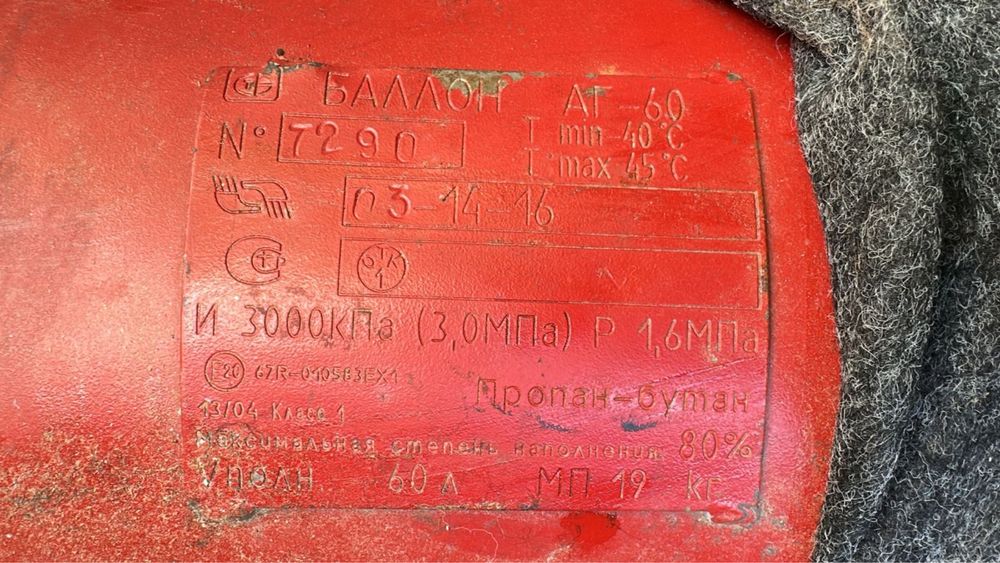 БАЛЛОН АГ-60
N° 7290 T min -40°C
T max 45°C
03-14-16
ОТК 1
И 3000кПа (3,0МПа) Р 1,6МПа
E20 67R-010583EX1 Пропан-бутан
13/04 Класс 1
Максимальная степень наполнения 80%
Vполн 60 л МП 19 кг